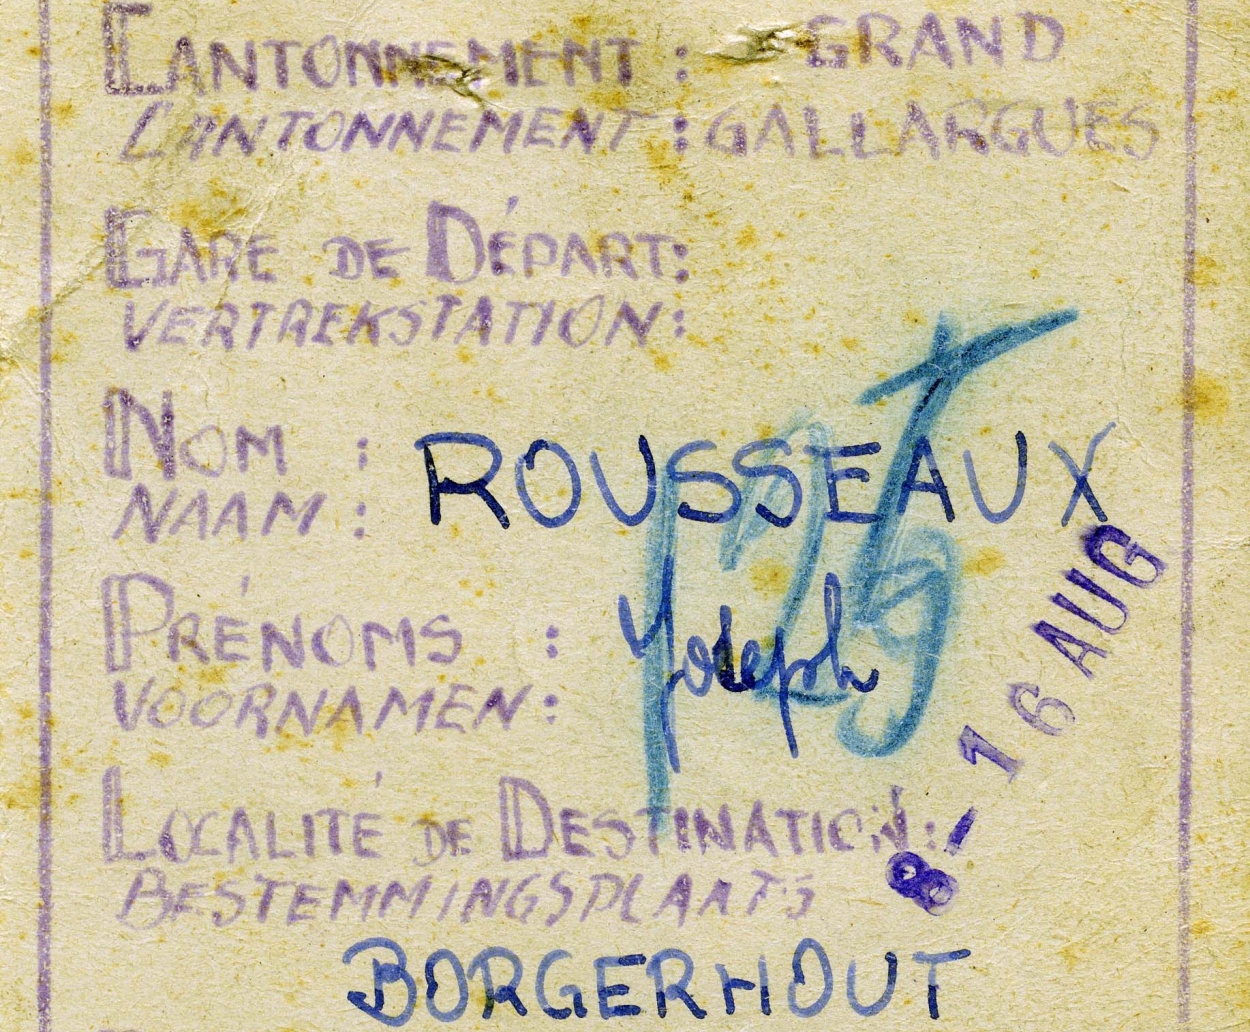 CANTONNEMENT : GRAND
CANTONNEMENT : GALLARGUES
GARE DE DÉPART:
VERTREKSTATION:
NOM : ROUSSEAUX
NAAM :
PRÉNOMS :
VOORNAMEN : Joseph
16 AUG
LOCALITÉ DE DESTINATION:
BESTEMMINGSPLAATS 8-
BORGERHOUT